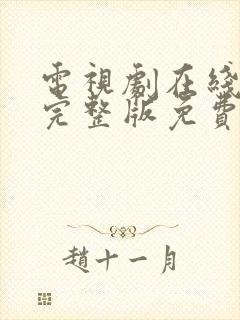 電視劇在綫
完整版免費
趙十一月